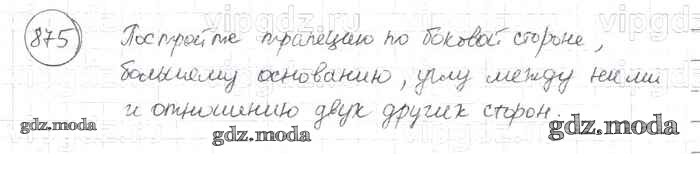 vipgdz.ru vipgdz
875 Постройте трапецию по боковой стороне,
большему основанию, углу между ними
и отношению двух других сторон.
gdz.moda gdz.moda gdz.moda